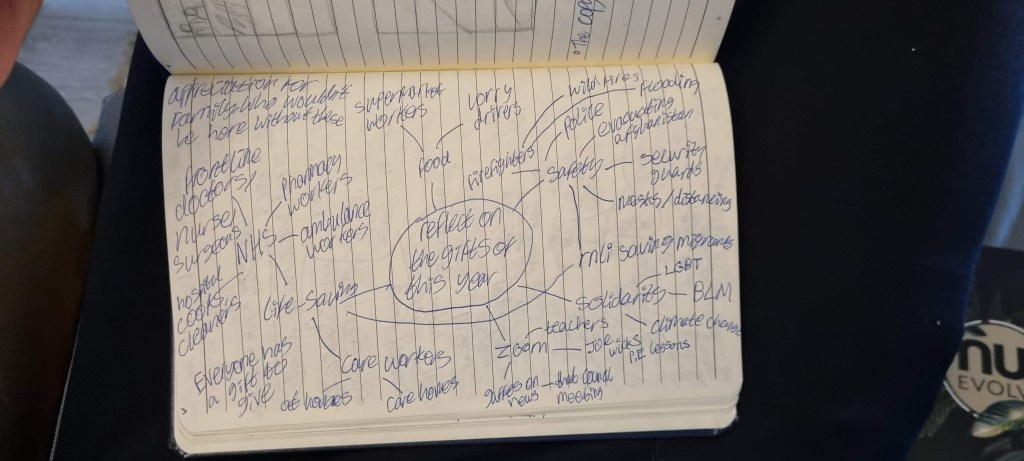 "The copy
appreciation for
family who wouldn't
be here without these
supermarket
workers
lorry
drivers
wildfires
flooding
police
evacuating
afghanistan
frontline
doctors
pharmacy
workers
food
firefighters
safety
security
guards
nurses
surgeons
NHS
ambulance
workers
masks/distancing
reflect on
the gifts of
this year
rnli saving migrants
hospital
cooks
cleaners
Life-saving
solidarity
LGBT
BLM
climate change
teachers
zoom
Joe
wicks
P.E lessons
Everyone has
a gift to
give
care workers
at homes
care homes
gaffes on
news
that council
meeting
nu
EVOLV